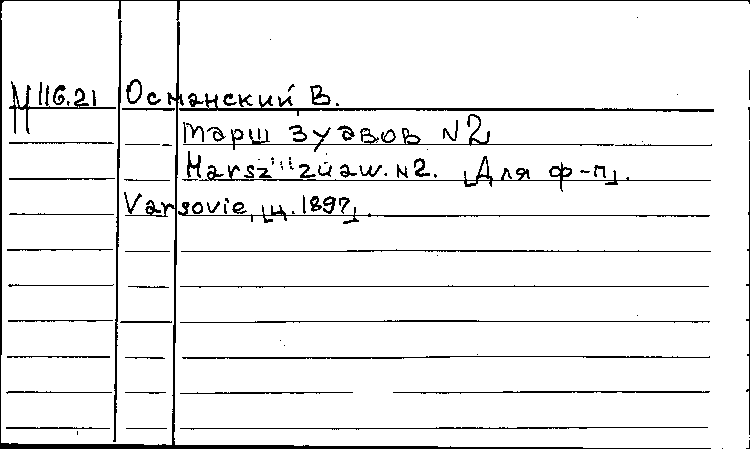 М 116.21 Османский, В.
Марш зуавов N2
Marsz żuaw. N2. [Для ф-п].
Varsovie, [ц. 1897].